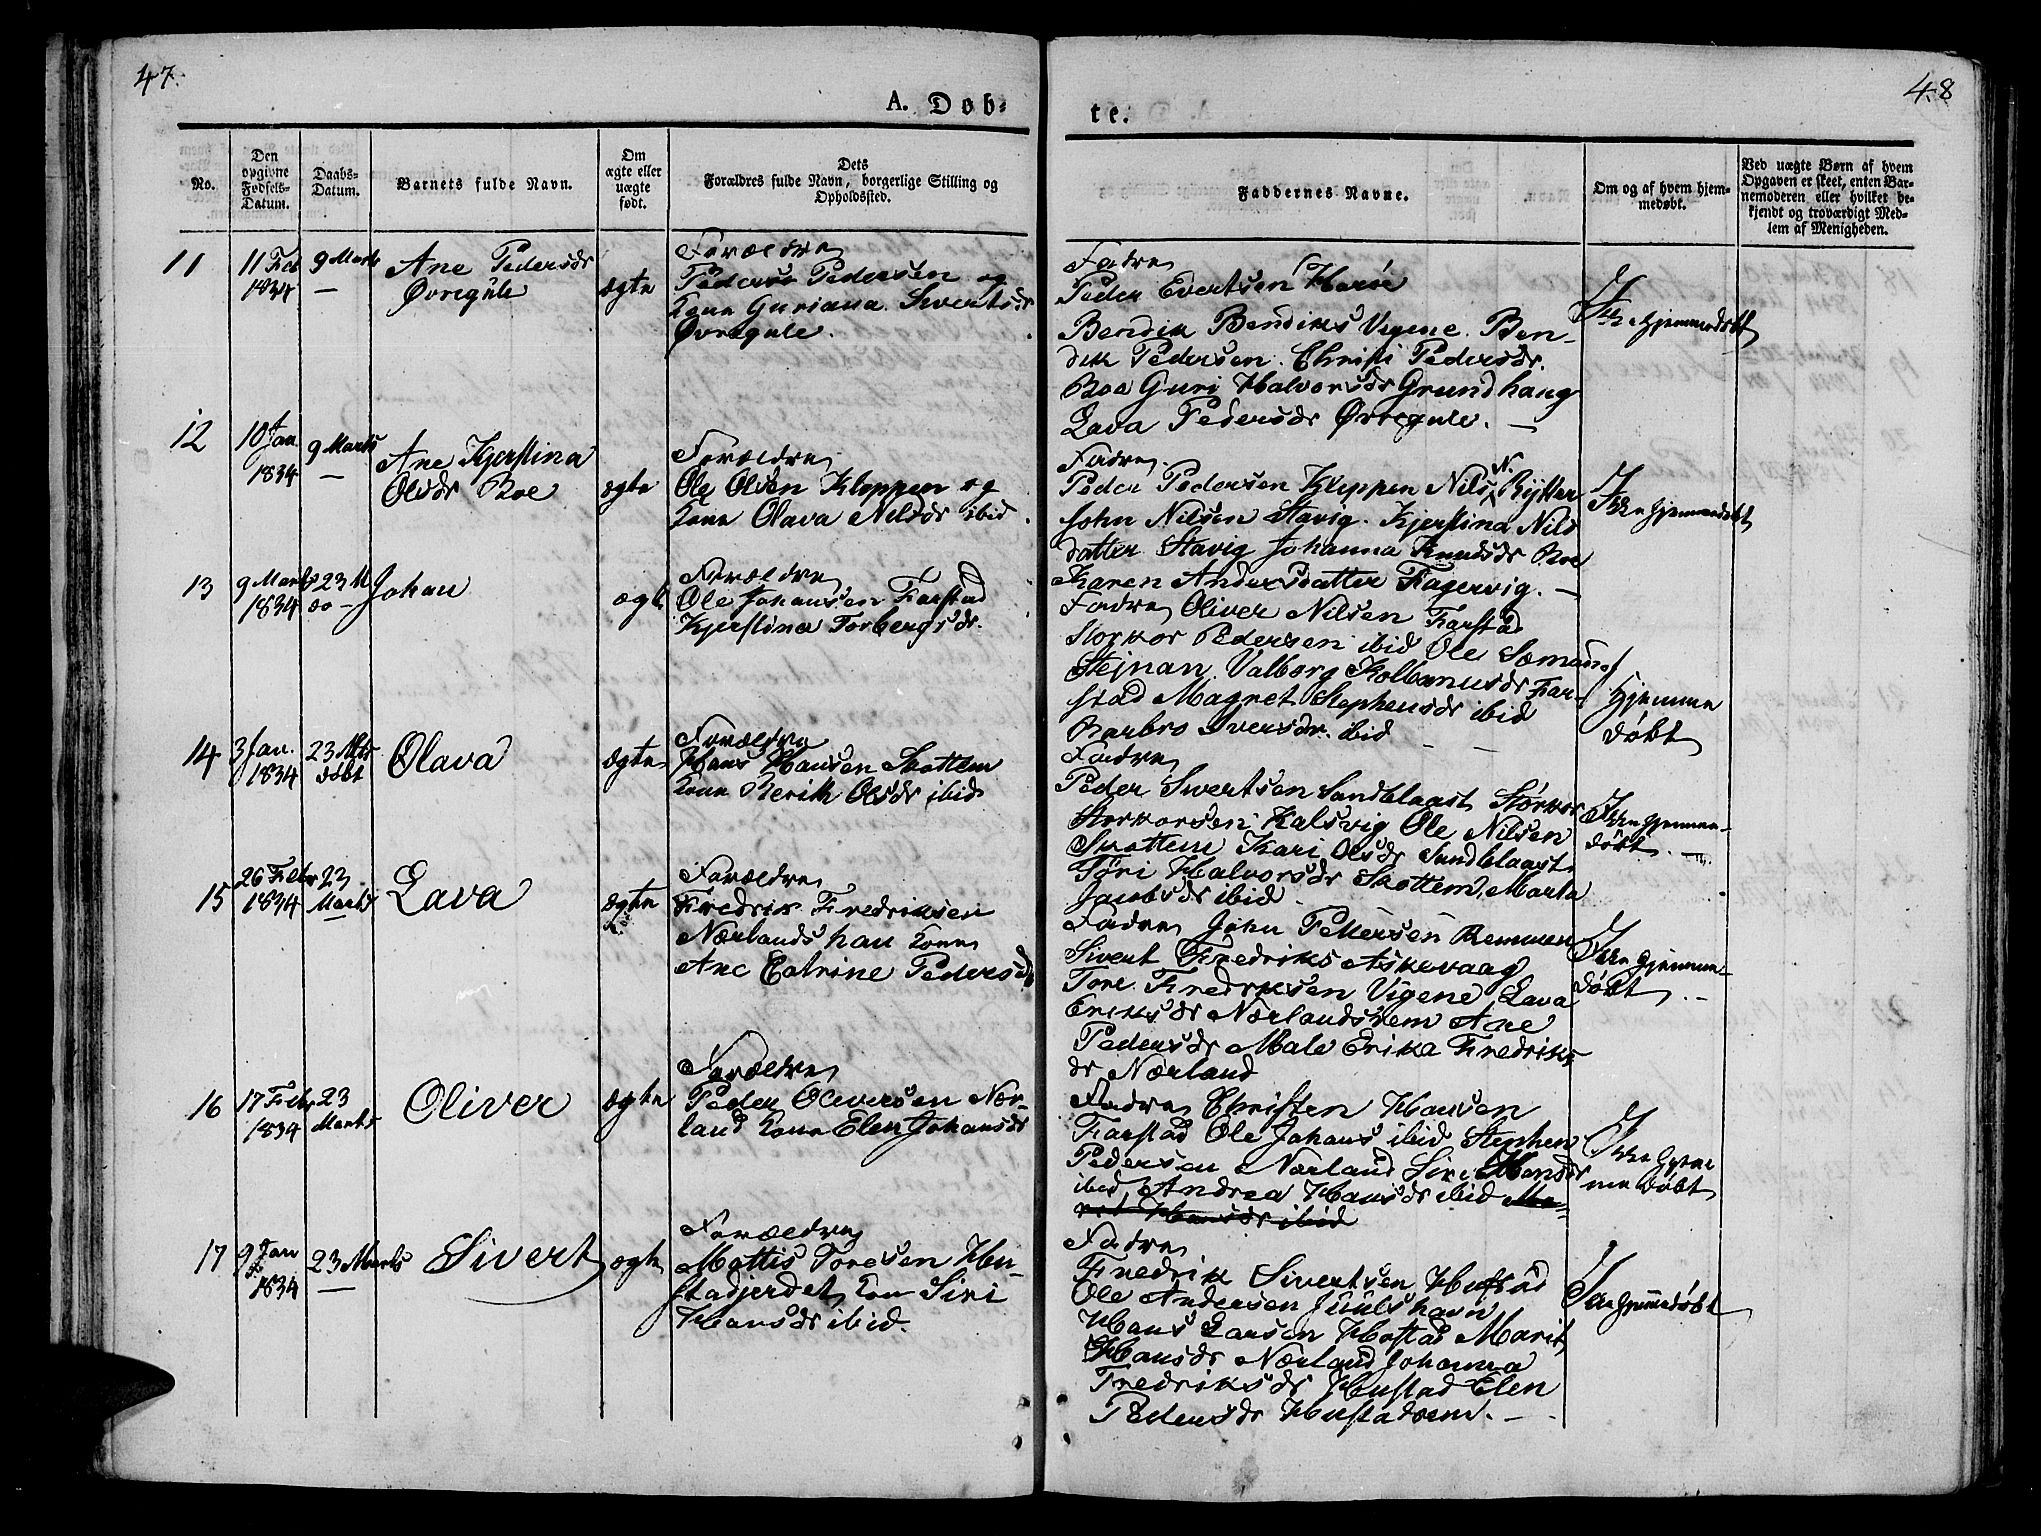 47.
48
A. Døb-
te.
No.
Den
opgivne
Fødsels-
Datum.
Daabs-
Datum.
Barnets fulde Navn.
Om
ægte eller
uægte
født.
Dets
Forældres fulde Navn, borgerlige Stilling og
Opholdssted.
Faddernes Navne.
Om og af hvem hjem-
medøbt.
Ved uægte Børn af hvem
Opgaven er skeet, enten Bar-
nemoderen eller hvilket be-
kjendt og troværdigt Med-
lem af Menigheden.
11
11 Feb
1834
9 Marts
—
Ane Pedersdr
Øvregule
ægte
Forældre
Peders Pedersen og
Kone Guriana Sivertsdr
Øvregule.
Fadre
Peder Evertsen Harøe
Bendik Bendiks Vigene. Ben-
dik Pedersen. Christi Pedersdr.
Boe Guri Halvorsdr Grundhaug
Lava Pedersdr Øvregule. —
Ikke Hjemmedøbt
12
10 Jan
1834
9 Marts
—
Ane Kjerstina
Olsdr Boe
ægte
Forældre
Ole Olsen Kleppen og
Kone Olava Nilsdr ibid.
Fadre
Peder Pedersen Kleppen Nils N. Rytter
John Nilsen Stavig. Kjerstina Nils
datter Stavig Johanna Knudsdr Boe
Karen Andersdatter Fagervig. —
Ikke Hjemmedøbt
13
9 Marts
1834
23 M
do —
Johan
ægte
Forældre
Ole Johansen Farstad
Kjerstina Torbergsdr.
Fadre Oliver Nilsen Farstad
Storkor Pedersen ibid Ole Sæmunds
Stejnan Valborg Kolbenusdr Far-
stad Magret Stephensdr ibid
Barbro Iversdr. ibid — —
Hjemme
døbt
14
3 Jan.
1834
23 Mts
døbt
Olava
ægte
Forældre
Hans Hansen Skottem
Kone Berith Olsdr ibid
Fadre
Peder Sivertsen Sandblaast Størkor
Storkorsen Kalsvig Ole Nilsen
Skottem Kari Olsdr Sandblaast
Tøri Halvorsdr Skottem, Marta
Jacobsdr ibid.
Ikke hjemme-
døbt. —
15
26 Febr
1834
23
Marts
Lava
ægte
Forældre
Fredrik Fredriksen
Nærlands han Kone
Ane Catrine Pedersdr
Fadre John Pettersen Remmen
Sivert Fredriks Askevaag
Tore Fredriksen Vigene Lava
Eriksdr Nærlandsvem Ane
Pedersdr Male Erika Fredriks
dr Nærland
Ikke hjemme-
døbt. —
16
17 Febr
1834
23
Marts
Oliver
ægte
Forældre
Peder Oliversen Nær-
land Kone Elen Johansdr
Fadre Christen Hansen
Farstad Ole Johans ibid Stephen
Pedersen Nærland Siri Hansdr
ibid Andrea Hansdr ibid Ma-
ret Hansdr ibid
Ikke hjem
me døbt
17
9 Jan
1834
23 Marts
—
Sivert
ægte
Forældre
Mattis Toresen Hu-
stadjerdet, Kone Siri
Hansdr ibid.
Fadre
Fredrik Sivertsen Hustad
Ole Andersen Juulshavn
Hans Larsen Hostad Marit
Hansdr Nærland Johanna
Fredriksdr Hustad Elen
Pedersdr Hustadvem. —
Ikke hjemmedøbt